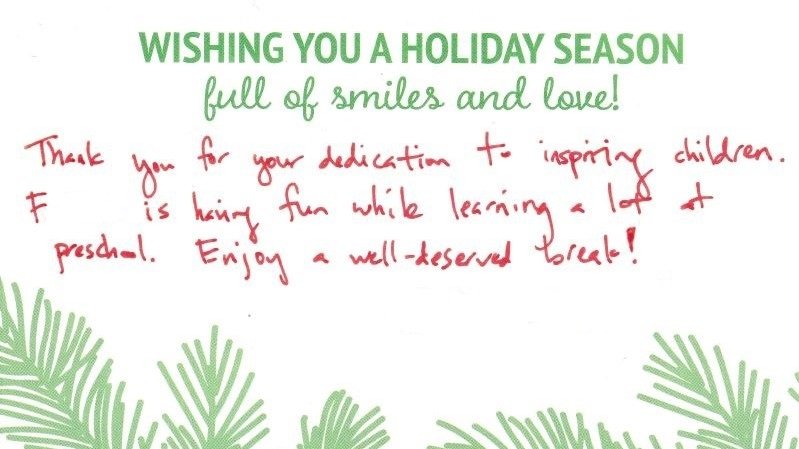 WISHING YOU A HOLIDAY SEASON
full of smiles and love!
Thank you for your dedication to inspiring children.
F is having fun while learning a lot at
preschool. Enjoy a well-deserved break!